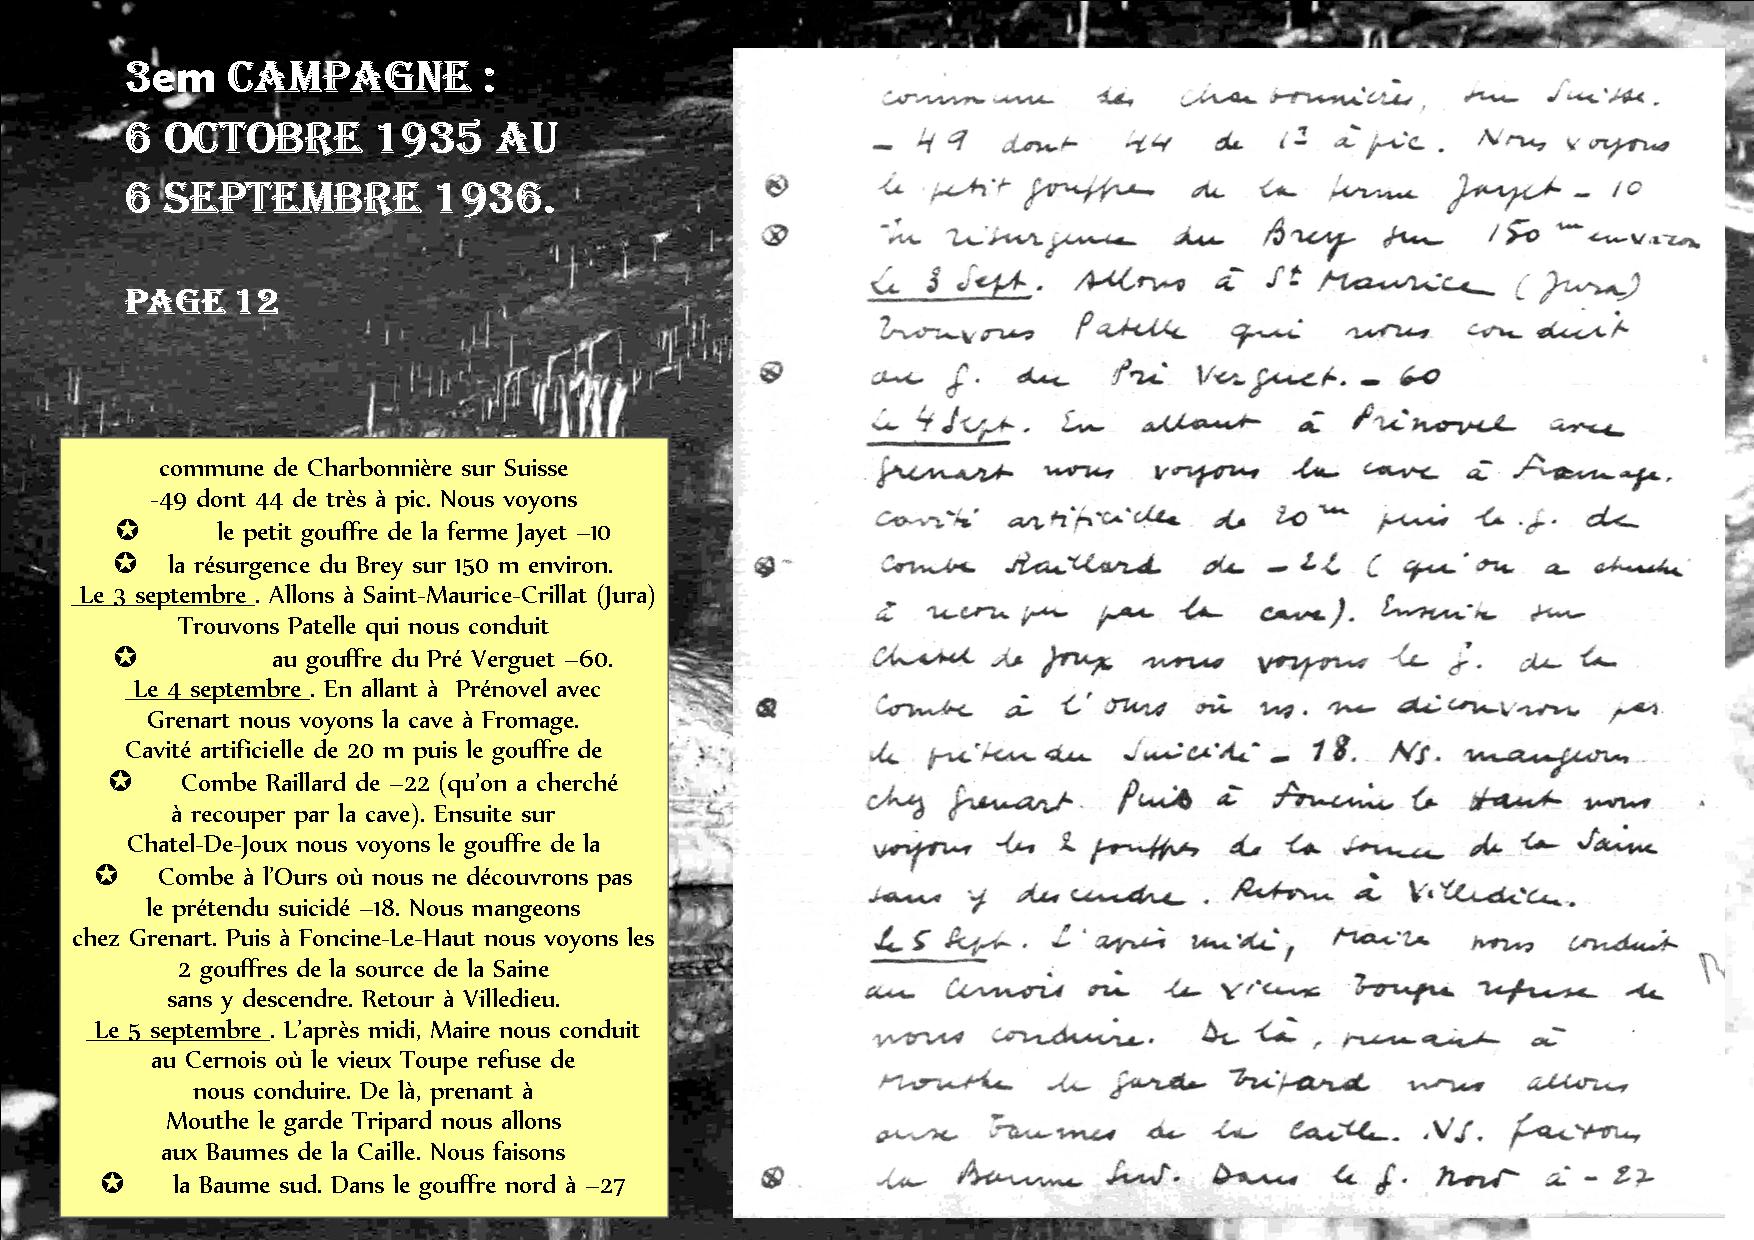 3em CAMPAGNE :
6 OCTOBRE 1935 AU
6 SEPTEMBRE 1936.
PAGE 12
commune de Charbonnière sur Suisse
-49 dont 44 de très à pic. Nous voyons
✪ le petit gouffre de la ferme Jayet –10
✪ la résurgence du Brey sur 150 m environ.
Le 3 septembre . Allons à Saint-Maurice-Crillat (Jura)
Trouvons Patelle qui nous conduit
✪ au gouffre du Pré Verguet –60.
Le 4 septembre . En allant à Prénovel avec
Grenart nous voyons la cave à Fromage.
Cavité artificielle de 20 m puis le gouffre de
✪ Combe Raillard de –22 (qu’on a cherché
à recouper par la cave). Ensuite sur
Chatel-De-Joux nous voyons le gouffre de la
✪ Combe à l’Ours où nous ne découvrons pas
le prétendu suicidé –18. Nous mangeons
chez Grenart. Puis à Foncine-Le-Haut nous voyons les
2 gouffres de la source de la Saine
sans y descendre. Retour à Villedieu.
Le 5 septembre . L’après midi, Maire nous conduit
au Cernois où le vieux Toupe refuse de
nous conduire. De là, prenant à
Mouthe le garde Tripard nous allons
aux Baumes de la Caille. Nous faisons
✪ la Baume sud. Dans le gouffre nord à –27
commune des Charbonnières, sur Suisse.
– 49 dont 44 de 1er à pic. Nous voyons
le petit gouffre de la ferme Jayet – 10
la résurgence du Brey sur 150 m environ
Le 3 Sept. Allons à St Maurice (Jura)
Trouvons Patelle qui nous conduit
au g. du Pré Verguet. – 60
Le 4 Sept. En allant à Prénovel avec
Grenart nous voyons la cave à Fromage.
cavité artificielle de 20 m puis le g. de
Combe Raillard de – 22 (qu'on a cherché
à recouper par la cave). Ensuite sur
Chatel de Joux nous voyons le g. de la
Combe à l'Ours où ns. ne découvrons pas
le prétendu suicidé – 18. Ns. mangeons
chez Grenart. Puis à Foncine le Haut nous
voyons les 2 gouffres de la source de la Saine
sans y descendre. Retour à Villedieu.
Le 5 Sept. L'après midi, Maire nous conduit
au Cernois où le vieux Toupe refuse de
nous conduire. De là, prenant à
Mouthe le garde Tripard nous allons
aux Baumes de la Caille. Ns. faisons
la Baume Sud. Dans le g. Nord à – 27